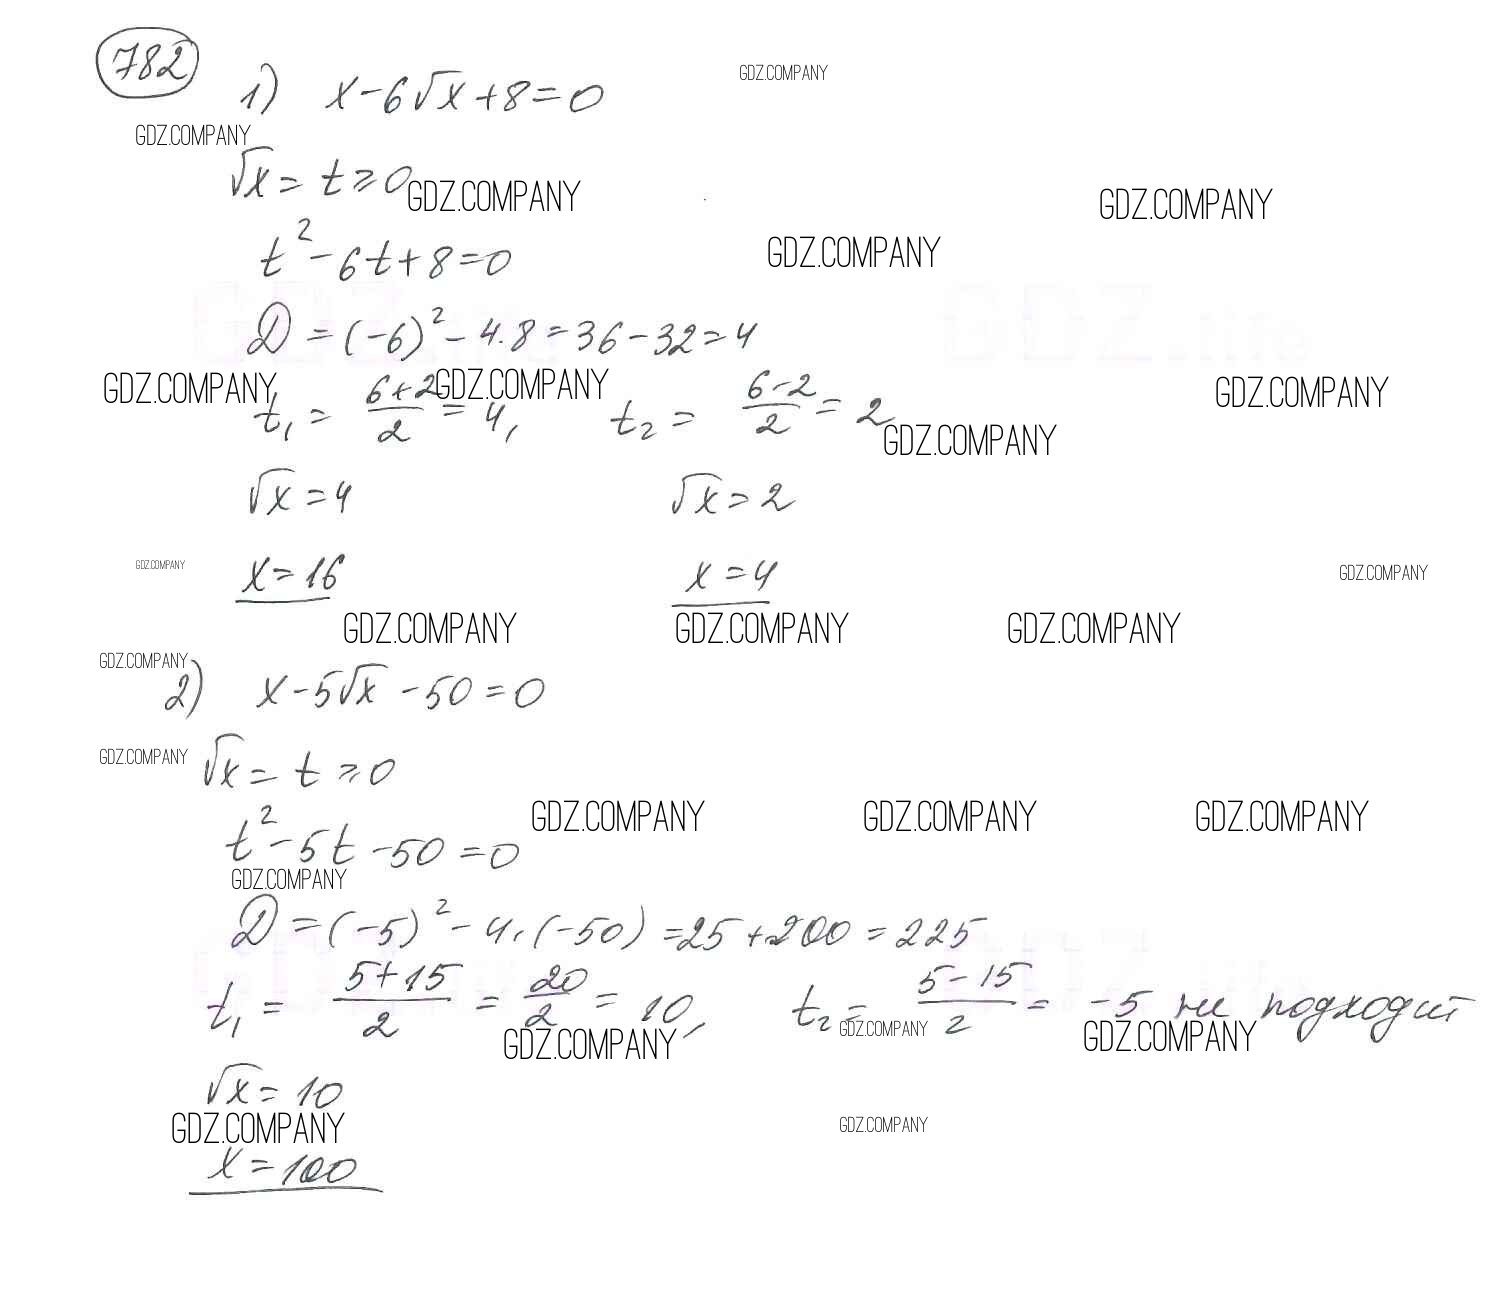 782
1) x-6√x+8=0
GDZ.COMPANY
GDZ.COMPANY
√x = t ≥ 0
GDZ.COMPANY
GDZ.COMPANY
GDZ.COMPANY
t² - 6t + 8 = 0
GDZ.life GDZ.life
D = (-6)² - 4·8 = 36 - 32 = 4
GDZ.COMPANY GDZ.COMPANY GDZ.COMPANY
t₁ = (6+2)/2 = 4, t₂ = (6-2)/2 = 2
GDZ.COMPANY
√x = 4 √x = 2
GDZ.COMPANY GDZ.COMPANY
x = 16 x = 4
GDZ.COMPANY GDZ.COMPANY GDZ.COMPANY
GDZ.COMPANY
2) x - 5√x - 50 = 0
GDZ.COMPANY
√x = t ≥ 0
GDZ.COMPANY GDZ.COMPANY GDZ.COMPANY
t² - 5t - 50 = 0
GDZ.COMPANY
D = (-5)² - 4·(-50) = 25 + 200 = 225
GDZ.life GDZ.life
t₁ = (5+15)/2 = 20/2 = 10, t₂ = (5-15)/2 = -5 не подходит
GDZ.COMPANY GDZ.COMPANY GDZ.COMPANY
√x = 10
GDZ.COMPANY GDZ.COMPANY
x = 100